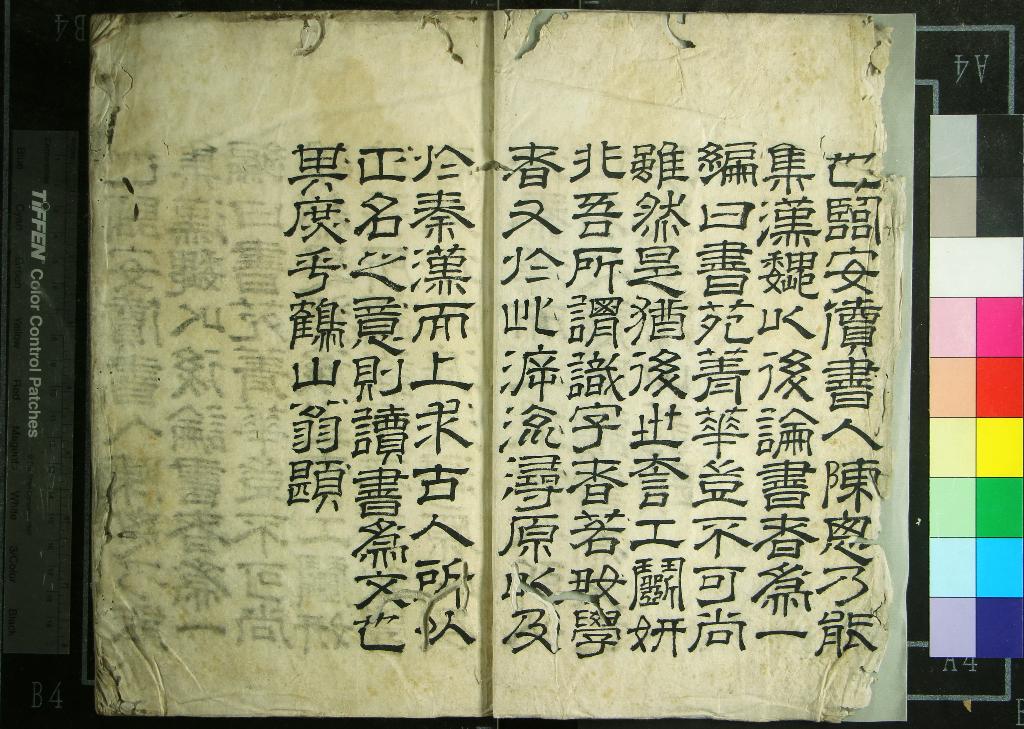 也臨安儥書人陳思乃能
集漢魏以後論書者爲一
編曰書苑菁華豈不可尚
雖然是猶後世夸工鬭妍
非吾所謂識字者若好學
者又於此泝流尋原以及
於秦漢而上求古人所以
正名之意則讀書爲文也
其庶乎鶴山翁題
B4
A4
A4
B4
TIFFEN Color Control Patches